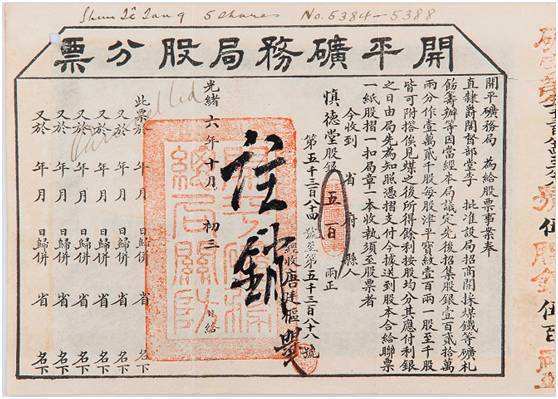 Shun Tê Tang 5 Shares No. 5384-5388
開平礦務局股分票
開平礦務局 為給股票事案奉
直隸爵閣督部堂李 批准設局招商開採煤鐵等礦札
飭籌辦等因當經本局議定先後招集股銀壹百貳拾萬
兩分作壹萬貳千股每股津平寶紋壹百兩一股至千股
皆可附搭俟見煤後所得餘利按股均分其應付利銀
之日由局先為知照憑摺支付今據送到股本合給聯票
一紙股摺一扣局章一本收執須至股票者
今收到 省 府 縣人
慎德堂股本 五百 兩正
第五千三百八十四號至第五千三百八十八號
經收唐廷樞
註銷
光緒六年十月初三日給
此票於 年 月 日歸併 省 名下
又於 年 月 日歸併 省 名下
又於 年 月 日歸併 省 名下
又於 年 月 日歸併 省 名下
又於 年 月 日歸併 省 名下
又於 年 月 日歸併 省 名下
Cancelled